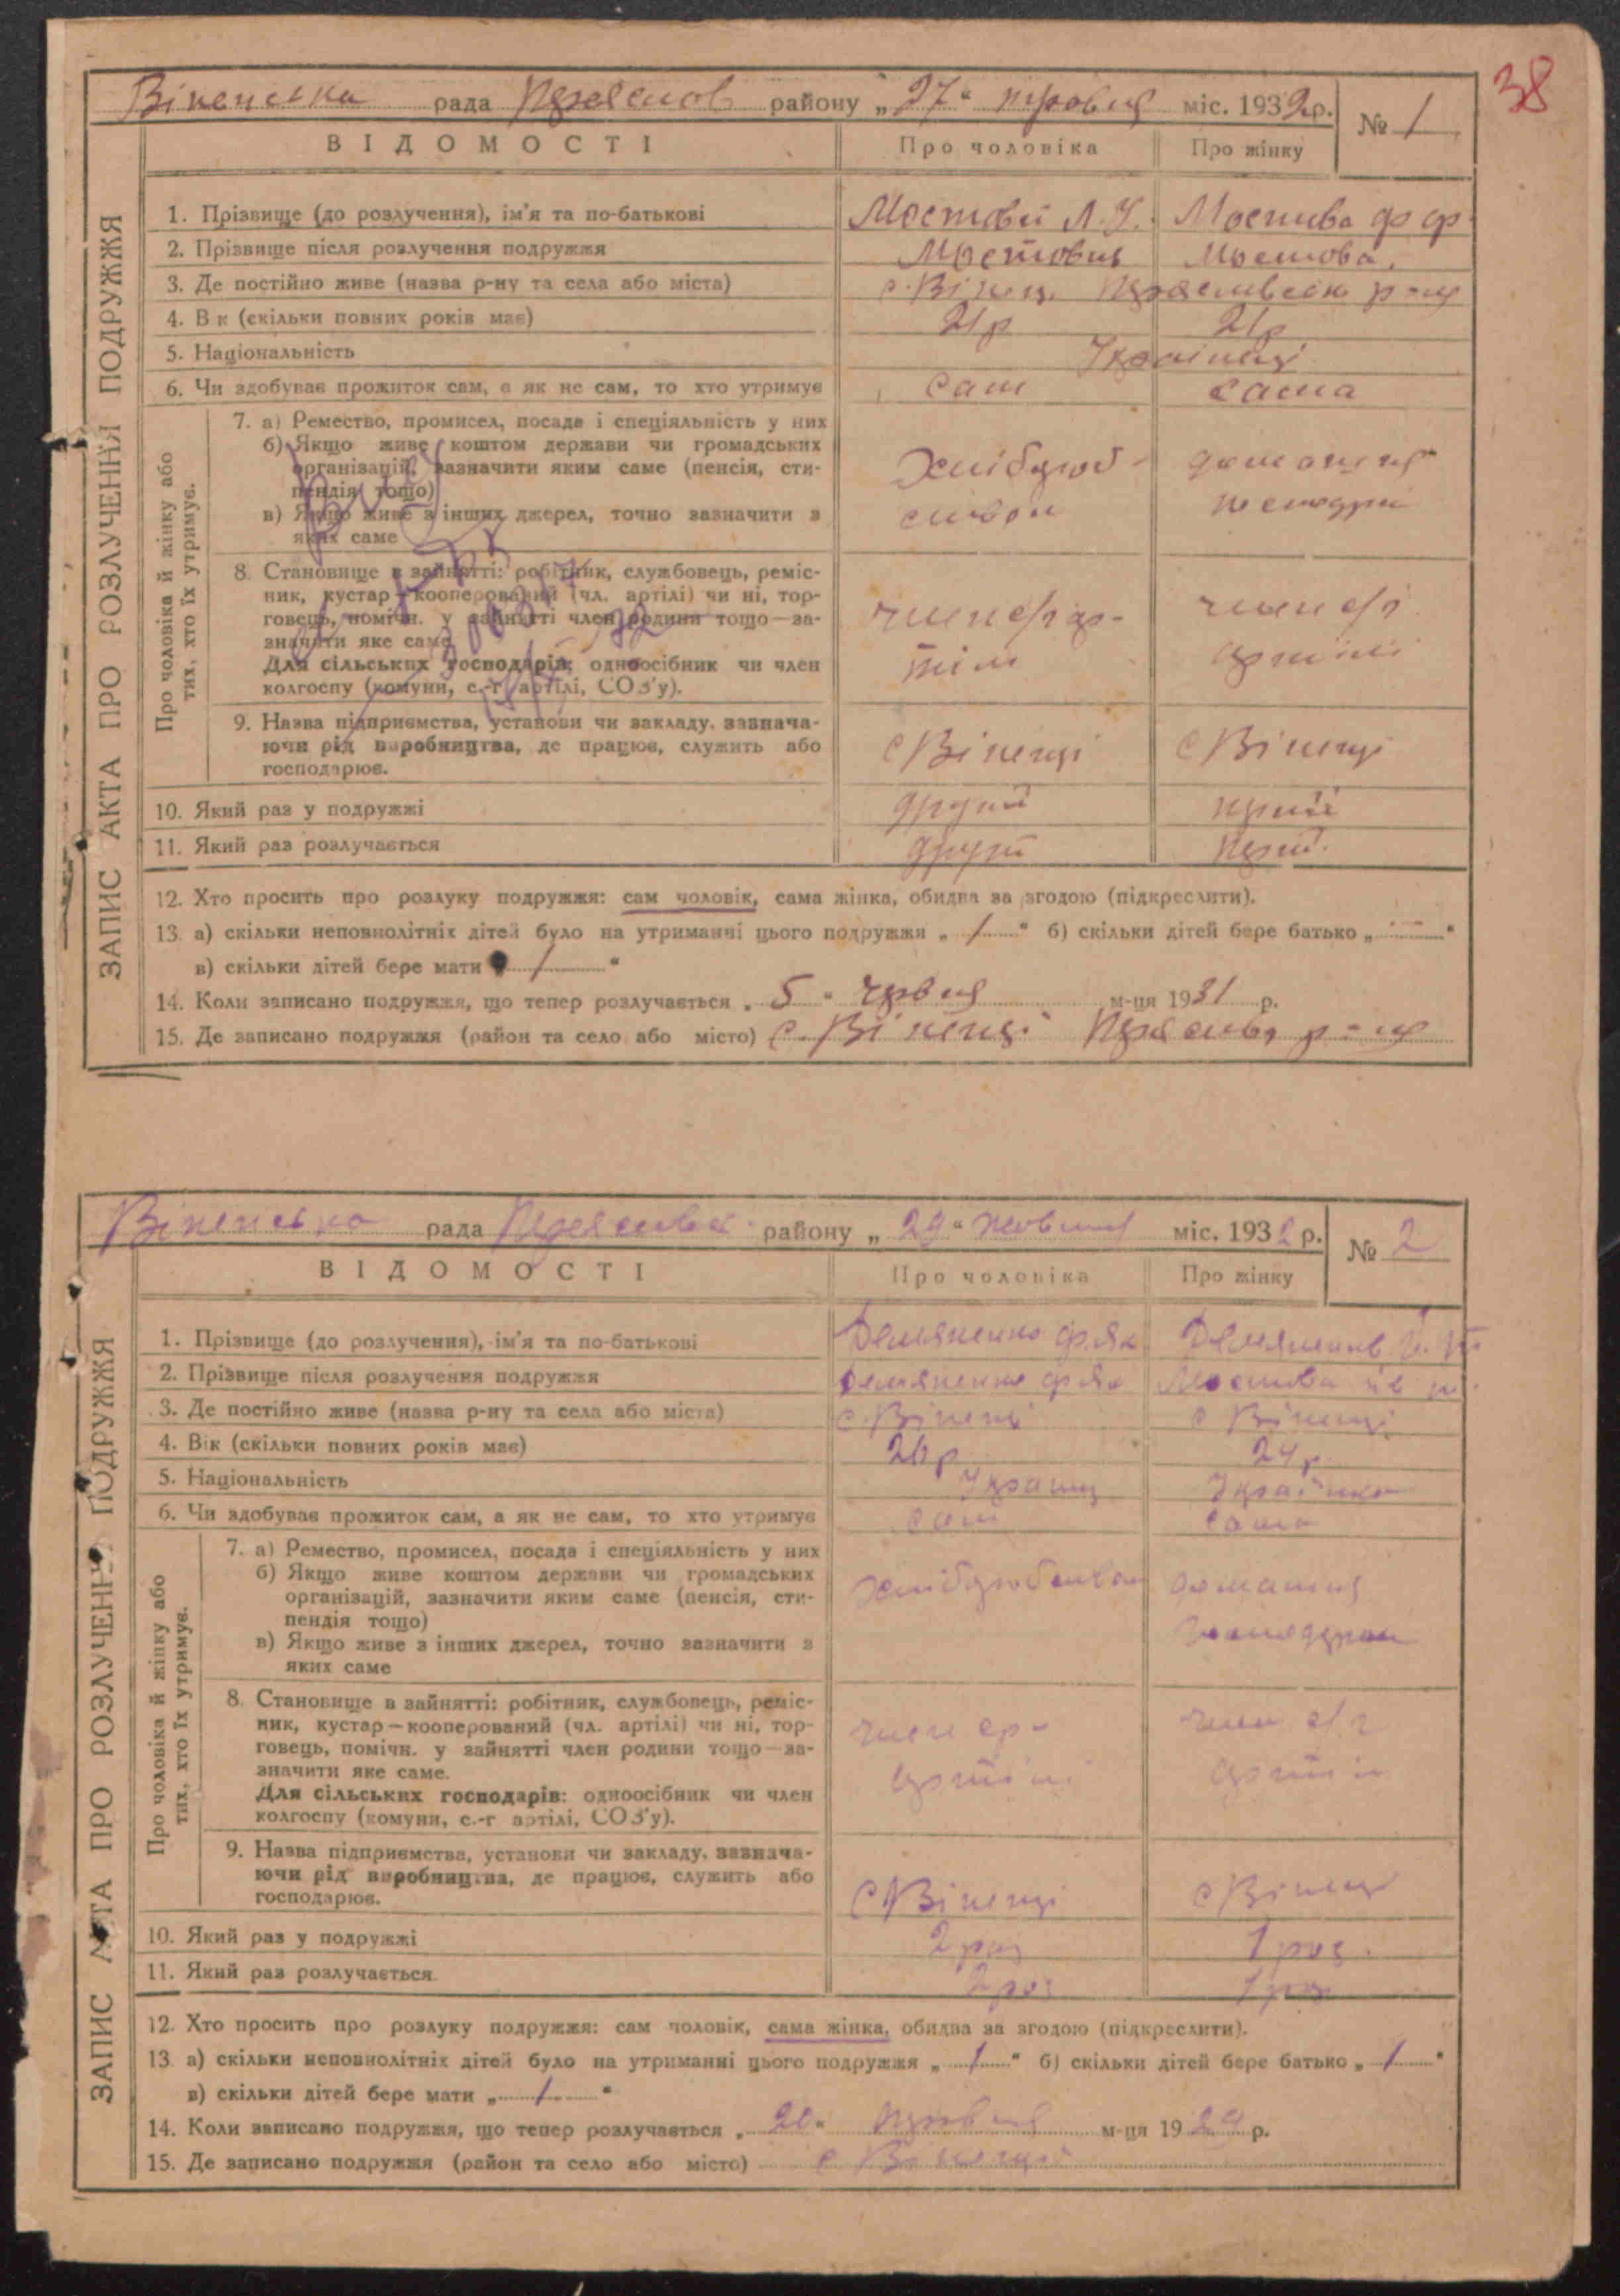 38
Віненська рада району „27“ травня міс. 1932 р. № 1
ВІДОМОСТІ Про чоловіка Про жінку
ЗАПИС АКТА ПРО РОЗЛУЧЕННЯ ПОДРУЖЖЯ
1. Прізвище (до розлучення), ім'я та по-батькові Мостовий Мостова Ф Ф
2. Прізвище після розлучення подружжя Мостовий Мостова
3. Де постійно живе (назва р-ну та села або міста) с. Вінец
4. В к (скільки повних років має) 21р 21р
5. Національність Українці
6. Чи здобуває прожиток сам, а як не сам, то хто утримує Сам Сама
Про чоловіка й жінку або
тих, хто їх утримує.
7. а) Ремество, промисел, посада і спеціяльність у них
б) Якщо живе коштом держави чи громадських
організацій, зазначити яким саме (пенсія, сти-
пендія тощо)
в) Якщо живе з інших джерел, точно зазначити з
яких саме
8. Становище в зайнятті: робітник, службовець, реміс-
ник, кустар—кооперований (чл. артілі) чи ні, тор-
говець, помічн. у зайнятті член родини тощо—за-
значити яке саме.
Для сільських господарів: одноосібник чи член
колгоспу (комуни, с.-г артілі, СОЗ'у).
член с/г ар- член с/г
тілі артілі
9. Назва підприємства, установи чи закладу, зазнача-
ючи рід виробництва, де працює, служить або
господарює.
с Віненці с Віненці
10. Який раз у подружжі другий
11. Який раз розлучається другий
12. Хто просить про розлуку подружжя: сам чоловік, сама жінка, обидва за згодою (підкреслити).
13. а) скільки неповнолітніх дітей було на утриманні цього подружжя „1“ б) скільки дітей бере батько „—“
в) скільки дітей бере мати „1“
14. Коли записано подружжя, що тепер розлучається „5“ червня м-ця 1931 р.
15. Де записано подружжя (район та село або місто) с. Віненці
Віненсько рада району „29“ жовтня міс. 1932 р. № 2
ВІДОМОСТІ Про чоловіка Про жінку
ЗАПИС АКТА ПРО РОЗЛУЧЕННЯ ПОДРУЖЖЯ
1. Прізвище (до розлучення), ім'я та по-батькові Демяненко Ф. Як Демяненко
2. Прізвище після розлучення подружжя Демяненко Ф Як Мостова
3. Де постійно живе (назва р-ну та села або міста) с. Віненці с Віненці
4. Вік (скільки повних років має) 26р 24р
5. Національність Українка
6. Чи здобуває прожиток сам, а як не сам, то хто утримує сам сама
Про чоловіка й жінку або
тих, хто їх утримує.
7. а) Ремество, промисел, посада і спеціяльність у них
б) Якщо живе коштом держави чи громадських
організацій, зазначити яким саме (пенсія, сти-
пендія тощо)
в) Якщо живе з інших джерел, точно зазначити з
яких саме
домашня
8. Становище в зайнятті: робітник, службовець, реміс-
ник, кустар—кооперований (чл. артілі) чи ні, тор-
говець, помічн. у зайнятті член родини тощо—за-
значити яке саме.
Для сільських господарів: одноосібник чи член
колгоспу (комуни, с.-г артілі, СОЗ'у).
член член с/г
артілі артіл
9. Назва підприємства, установи чи закладу, зазнача-
ючи рід виробництва, де працює, служить або
господарює.
с Віненці с Віненці
10. Який раз у подружжі 2 раз 1 раз
11. Який раз розлучається 2 раз 1 раз
12. Хто просить про розлуку подружжя: сам чоловік, сама жінка, обидва за згодою (підкреслити).
13. а) скільки неповнолітніх дітей було на утриманні цього подружжя „1“ б) скільки дітей бере батько „1“
в) скільки дітей бере мати „1“
14. Коли записано подружжя, що тепер розлучається м-ця 1929 р.
15. Де записано подружжя (район та село або місто) с Віненці